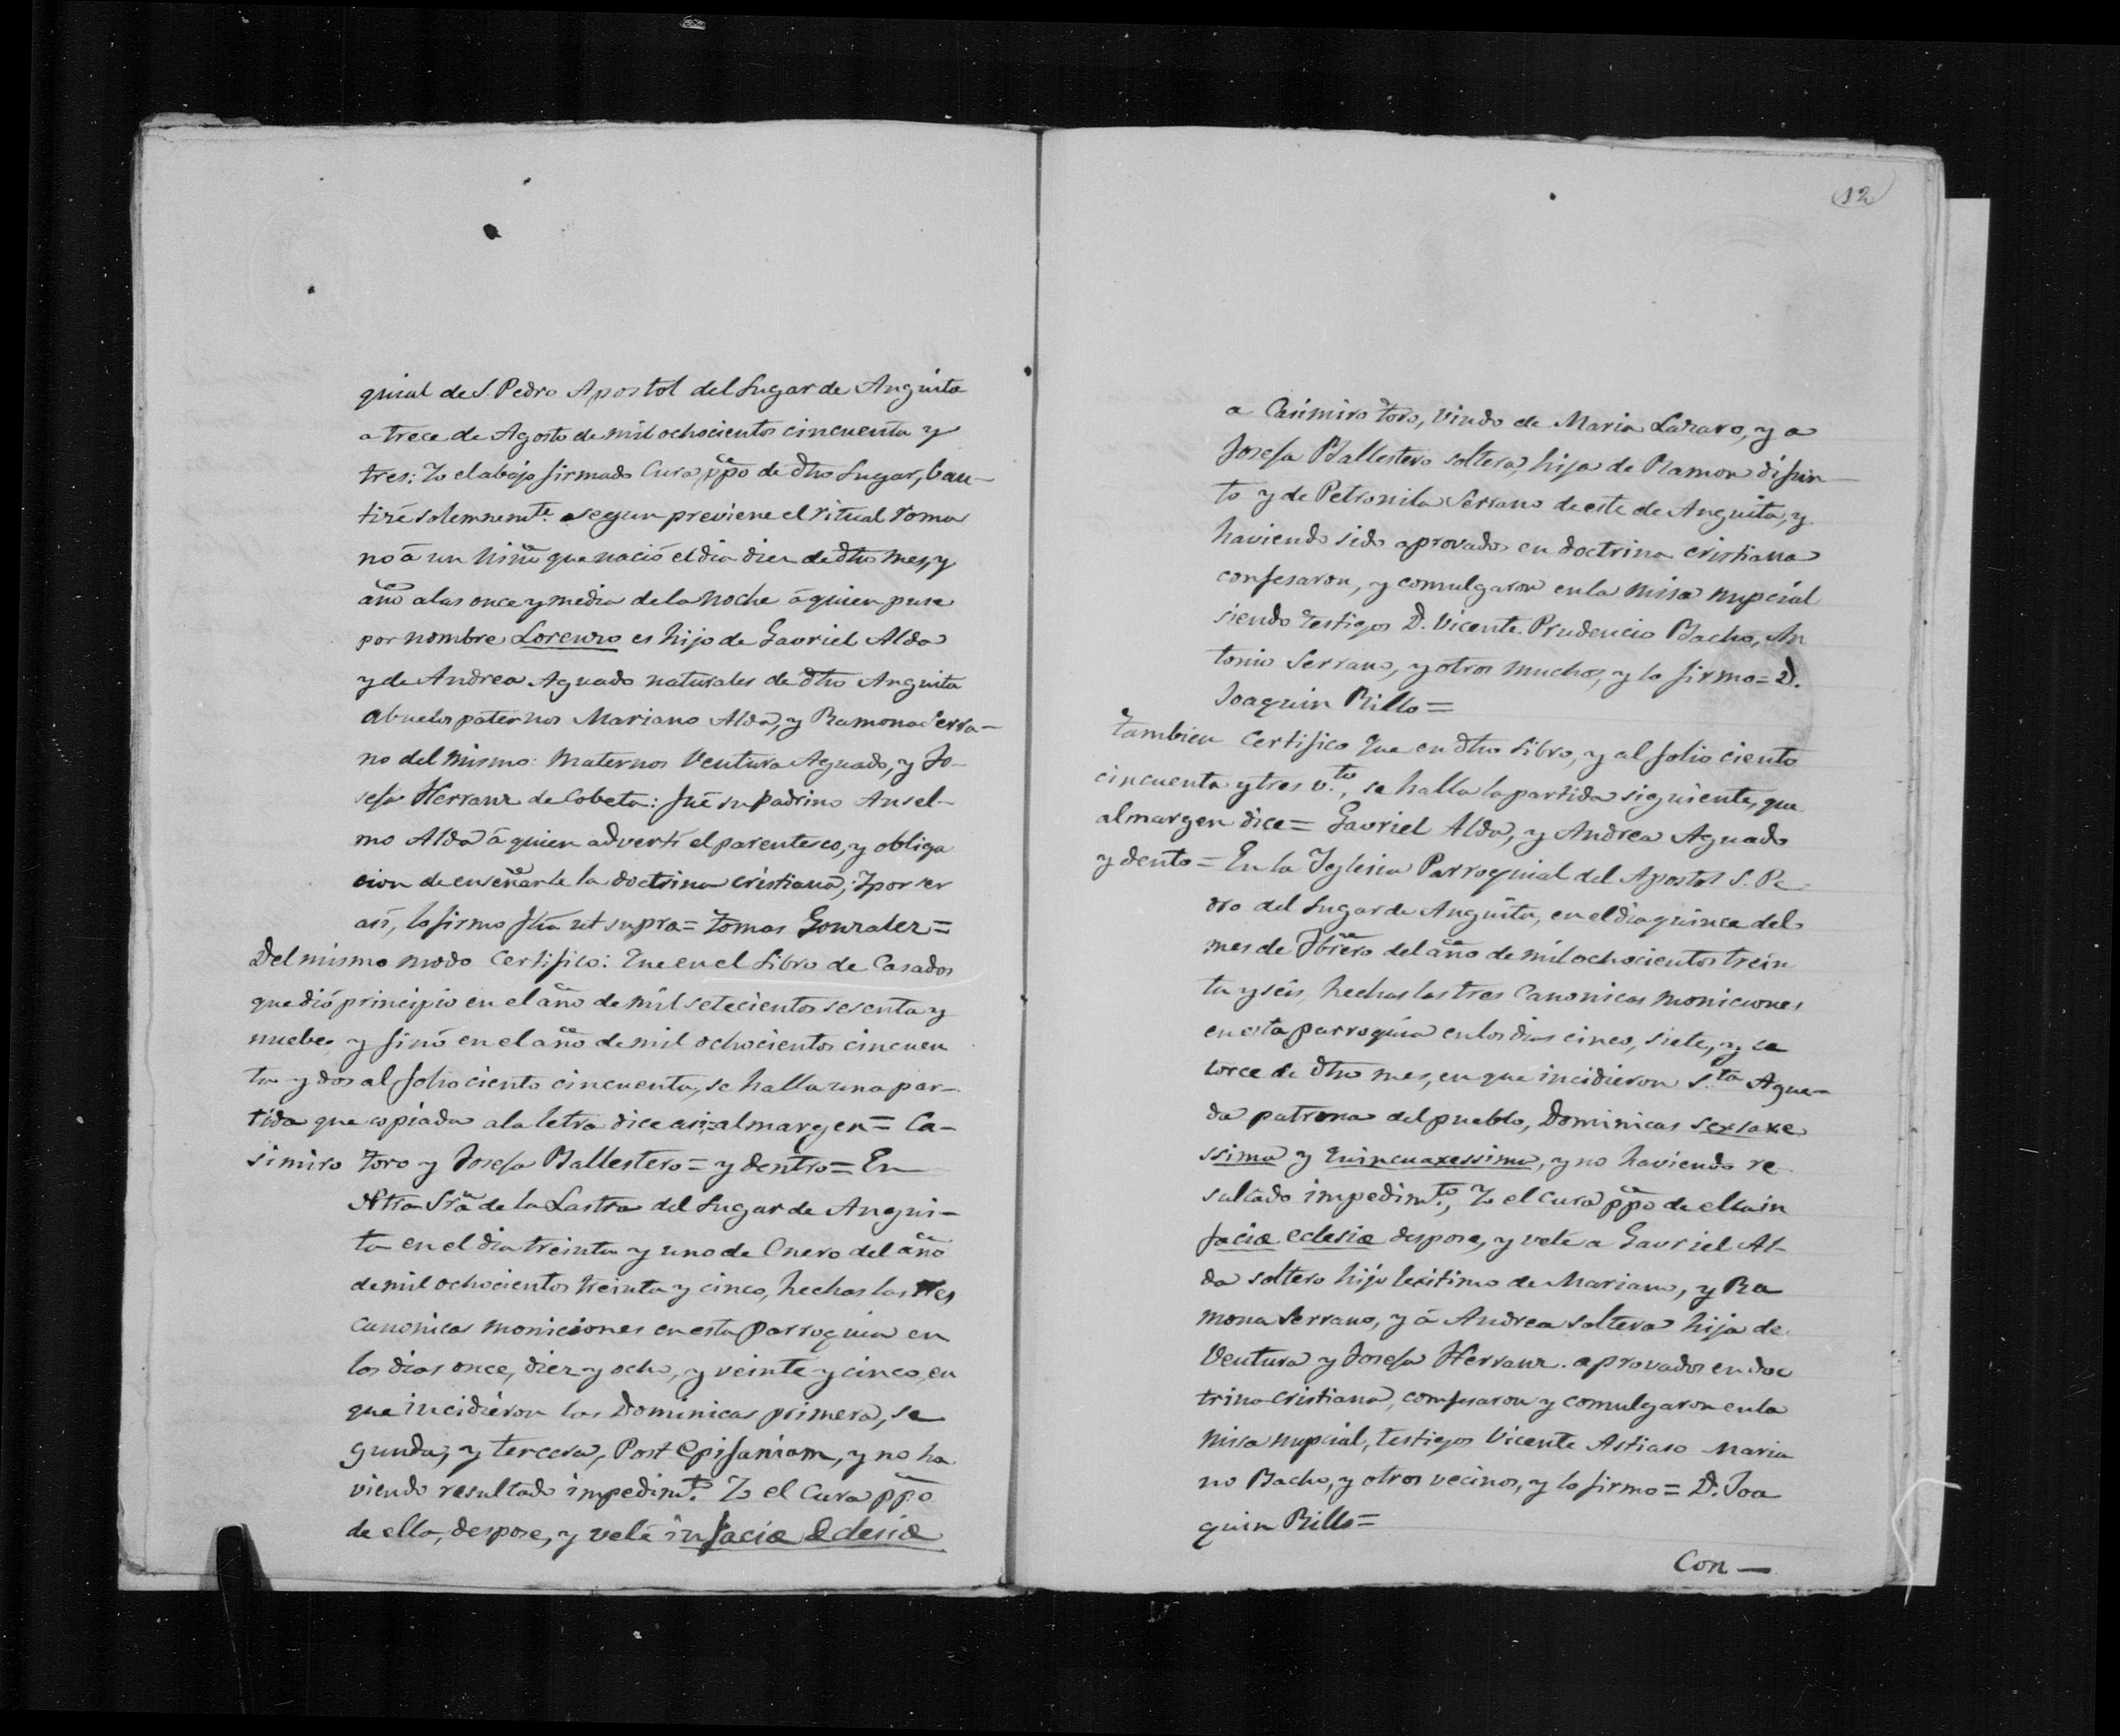 quial de S. Pedro Apostol del Lugar de Anguita
a trece de Agosto de mil ochocientos cincuenta y
tres: Yo el abajo firmado Cura ppo de dho Lugar, bau-
ticé solemnemte. segun previene el ritual roma
no á un niño que nació el dia diez de dho mes, y
año a las once y media de la noche á quien puse
por nombre Lorenzo es hijo de Gavriel Alda
y de Andrea Aguado naturales de dho Anguita
abuelos paternos Mariano Alda, y Ramona Serra-
no del mismo: maternos Ventura Aguado, y Jo-
sefa Herranz de Cobeta: fué su padrino Ansel-
mo Alda á quien advertí el parentesco, y obliga
cion de enseñarle la doctrina cristiana; Y por ser
así, lo firmo fha ut supra = Tomas Gonzalez =
Del mismo modo Certifico: Que en el Libro de Casados
que dió principio en el año de mil setecientos sesenta y
nuebe, y finó en el año de mil ochocientos cincuen
ta y dos al folio ciento cincuenta, se halla una par-
tida que copiada a la letra dice asi = al margen = Ca-
simiro Toro y Josefa Ballestero = y dentro = En
Ntra Sra de la Lastra del Lugar de Angui-
ta en el dia treinta y uno de Enero del año
de mil ochocientos treinta y cinco, hechas las tres
canonicas moniciones en esta parroquia en
los dias once, diez y ocho, y veinte y cinco, en
que incidieron las Dominicas primera, se
gunda, y tercera, Post Epifaniam, y no ha
viendo resultado impedimto. Yo el Cura ppo
de ella, despose, y velé in faciæ Eclesiæ
12
a Casimiro Toro, viudo de Maria Lazaro, y a
Josefa Ballestero soltera, hija de Ramon difun-
to y de Petronila Serrano de este de Anguita, y
haviendo sido aprovados en doctrina cristiana
confesaron, y comulgaron en la misa nupcial
siendo testigos D. Vicente Prudencio Bacho, An
tonio Serrano, y otros muchos, y lo firmo = D.
Joaquin Rillo =
Tambien Certifico Que en dho Libro, y al folio ciento
cincuenta y tres v.to, se halla la partida siguiente, que
al margen dice = Gavriel Alda, y Andrea Aguado
y dento = En la Yglesia Parroquial del Apostol S. Pe
dro del Lugar de Anguita, en el dia quince del
mes de Fbrero del año de mil ochocientos trein
ta y seis, hechas las tres Canonicas moniciones
en esta parroquia en los dias cinco, siete, y ca
torce de dho mes, en que incidieron S.ta Ague-
da patrona del pueblo, Dominicas sexsaxe
ssima y Quincuaxessima, y no haviendo re
sultado impedimto., Yo el cura ppo de ella in
faciæ eclesiæ despose, y velé a Gavriel Al-
da soltero hijo lexitimo de Mariano, y Ra
mona Serrano, y á Andrea soltera hija de
Ventura y Josefa Herranz. aprovados en doc
trina cristiana, confesaron y comulgaron en la
misa nupcial, testigos Vicente Astiaso Maria
no Bacho, y otros vecinos, y lo firmo = D. Joa
quin Rillo =
Con —